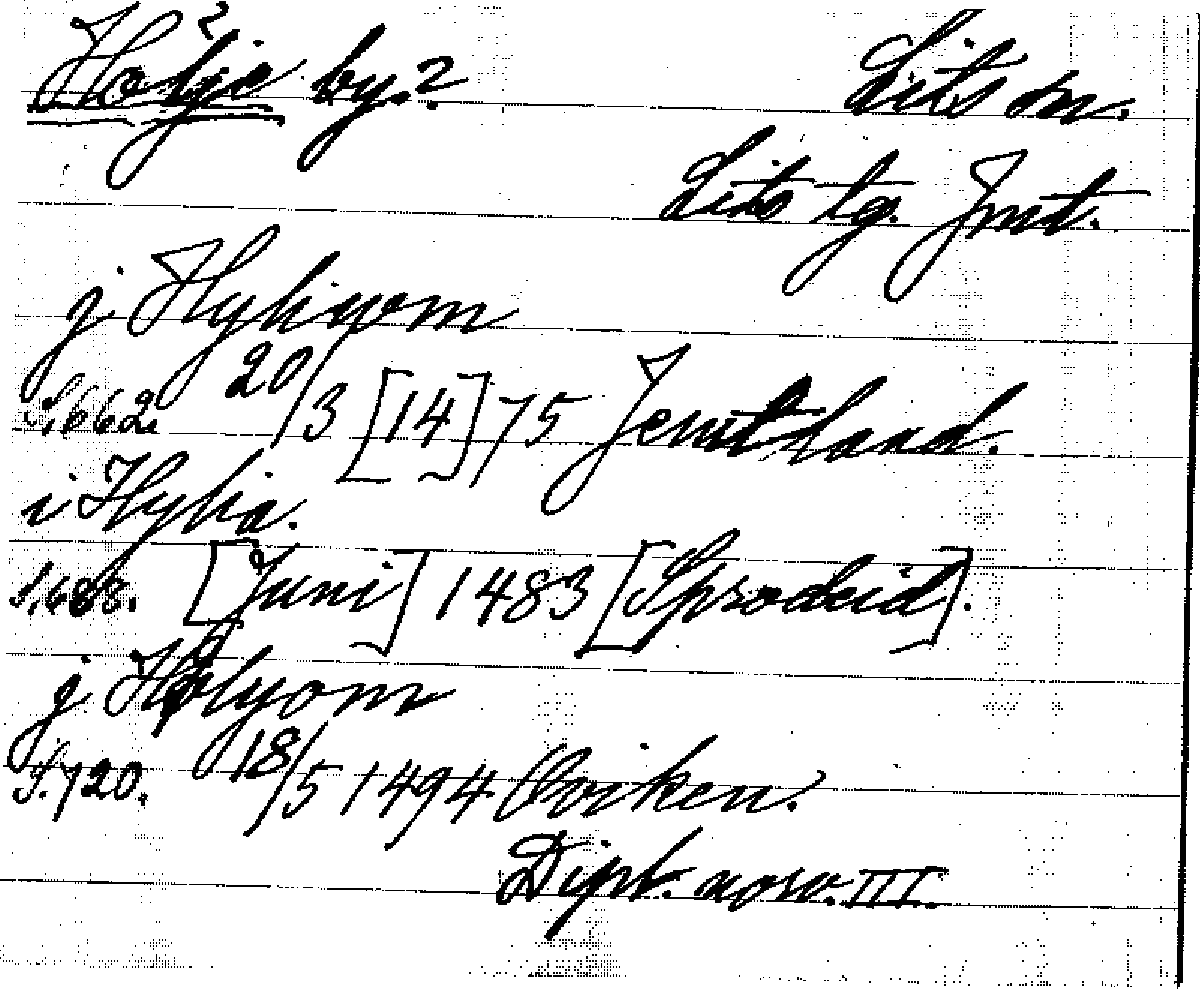 Hötje by.? Lits sn.
Lits tg. Jmt.
j Hyliyom
S.662. 20/3 [14]75 Jemtland.
i Hylia.
S.688. [Juni] 1483 [Sprodeid].
j Hølyom
S.720. 18/5 1494 Oviken.
Dipl. norv. III.